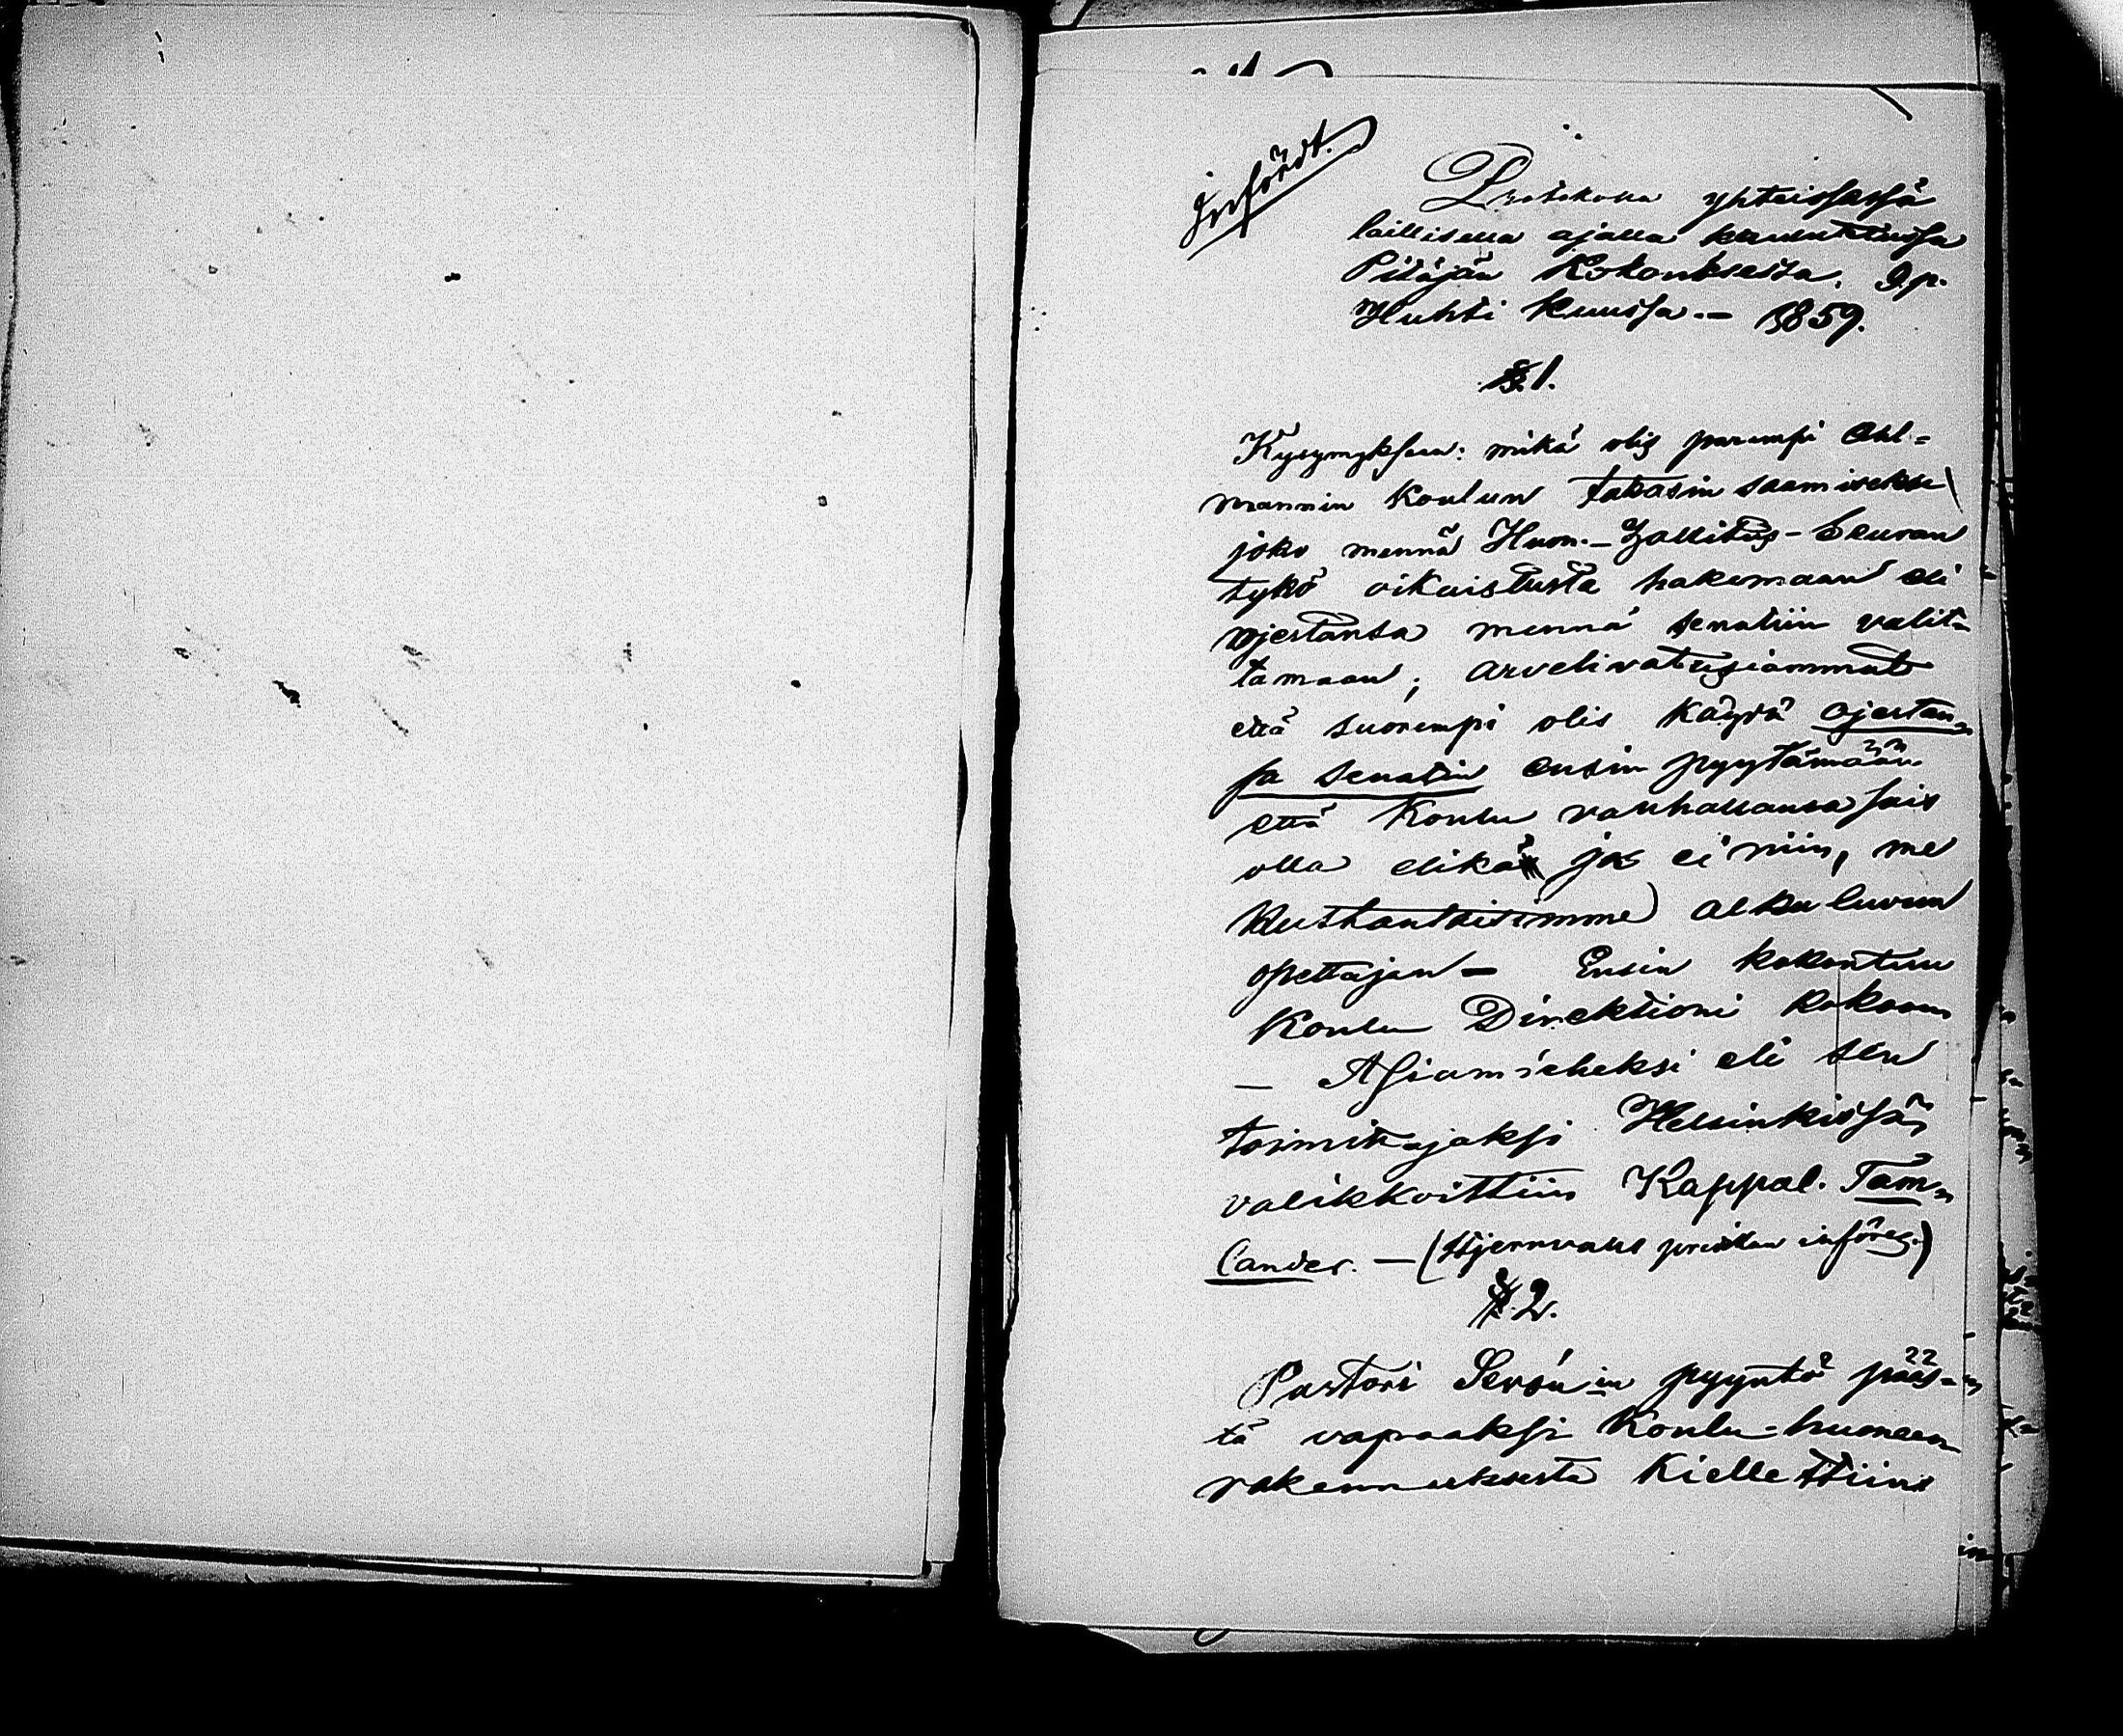 Infördt.
Protokolla yhteisessä
laillisella ajalla kuulutetussa
Pitäjän Kokouksesta. 9. p.
Huhti kuussa. – 1859.
§. 1.
Kysymyksen: mikä olis parempi Ahl=
mannin Koulun takasin saamiseksi
joko mennä Huon.–Hallitus–Seuran
tykö oikaistusta hakemaan eli
ojestansa mennä senatiin valit=
tamaan; arvelivat usiammat
että suorempi olis käydä ojestan=
sa senatin ensin pyytämään
että Koulu vanhallansa sais
olla elikä jos ei niin, me
kustantaisimme alku luvun
opettajan – Ensin kokontuu
Koulu Direktioni kokoon
– Asiamieheksi eli sen
toimittajaksi Helsinkissä,
valikkoittiin Kappal. Tam=
lander. – ( införes.)
§. 2.
Pastori pyyntö pääs=
tä vapaaksi Koulu=huoneen
rakennuksesta Kiellettiin